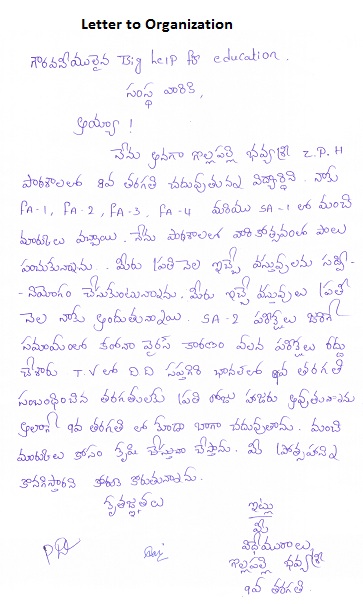 Letter to Organization
గౌరవనీయులైన Big help for education.
సంస్థ వారికి,
అయ్యా !
నేను అనగా గొల్లపల్లి భవ్యశ్రీ Z.P.H
పాఠశాలలో 8వ తరగతి చదువుతున్న విద్యార్థిని. నాకు
FA-1, FA-2, FA-3, FA-4 మరియు SA-1 లో మంచి
మార్కులు వచ్చాయి. నేను పాఠశాలలో వార్షికోత్సవంలో పాలు
పంచుకున్నాను. మీరు ప్రతి నెల ఇచ్చే వస్తువులను సద్వి-
-నియోగం చేసుకుంటున్నాను. మీరు ఇచ్చే వస్తువులు ప్రతి
నెల నాకు అందుతున్నాయి. SA-2 పరీక్షలు జరిగే
సమయంలో కరోనా వైరస్ కారణం వలన పరీక్షలు రద్దు
చేశారు T.V లో డి డి సప్తగిరి ఛానల్‌లో 9వ తరగతి
సంబంధించిన తరగతులకు ప్రతి రోజు హాజరు అవుతున్నాను
అలాగే 9వ తరగతి లో కూడా బాగా చదువుతాను. మంచి
మార్కులు కోసం కృషి చేస్తూ చేస్తాను. మీ ప్రోత్సాహాన్ని
కొనసాగిస్తారని కోరుతున్నాను.
కృతజ్ఞతలు
ఇట్లు
మీ
విధేయురాలు,
గొల్లపల్లి భవ్యశ్రీ
9వ తరగతి.